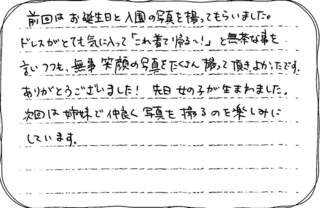 前回は お誕生日と入園の写真を撮ってもらいました。
ドレスがとても気に入って「これ着て帰る〜!」と無茶な事を
言いつつも、無事 笑顔の写真をたくさん撮って頂きよかったです。
ありがとうございました! 先日 女の子が生まれました。
次回は姉妹で仲良く写真を撮るのを楽しみに
しています。